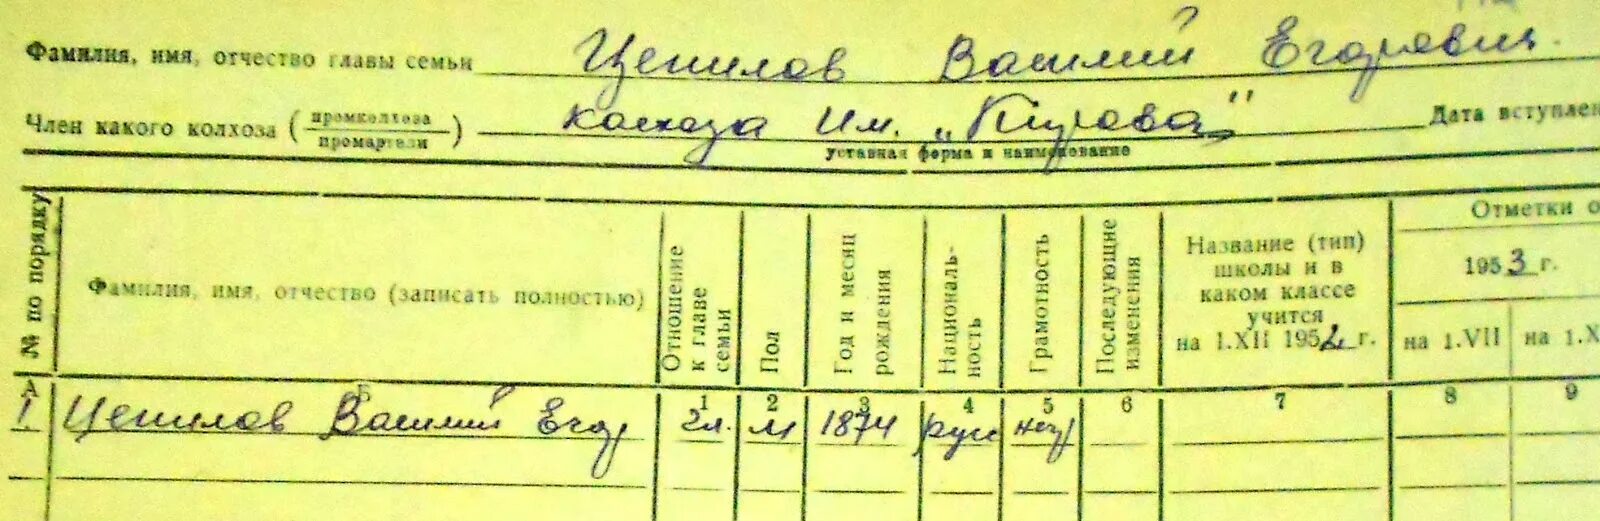 Фамилия, имя, отчество главы семьи Цепилов Василий Егорович.
Член какого колхоза (промколхоза / промартели) колхоза им. „Кирова" Дата вступлен
уставная форма и наименование
№ по порядку
Фамилия, имя, отчество (записать полностью)
Отношение к главе семьи
Пол
Год и месяц рождения
Националь-
ность
Грамотность
Последующие изменения
Название (тип)
школы и в
каком классе
учится
на 1.XII 1952 г.
Отметки о
1953 г.
на 1.VII на 1.X
А Б 1 2 3 4 5 6 7 8 9
1. Цепилов Василий Егор гл. м 1874 рус негр